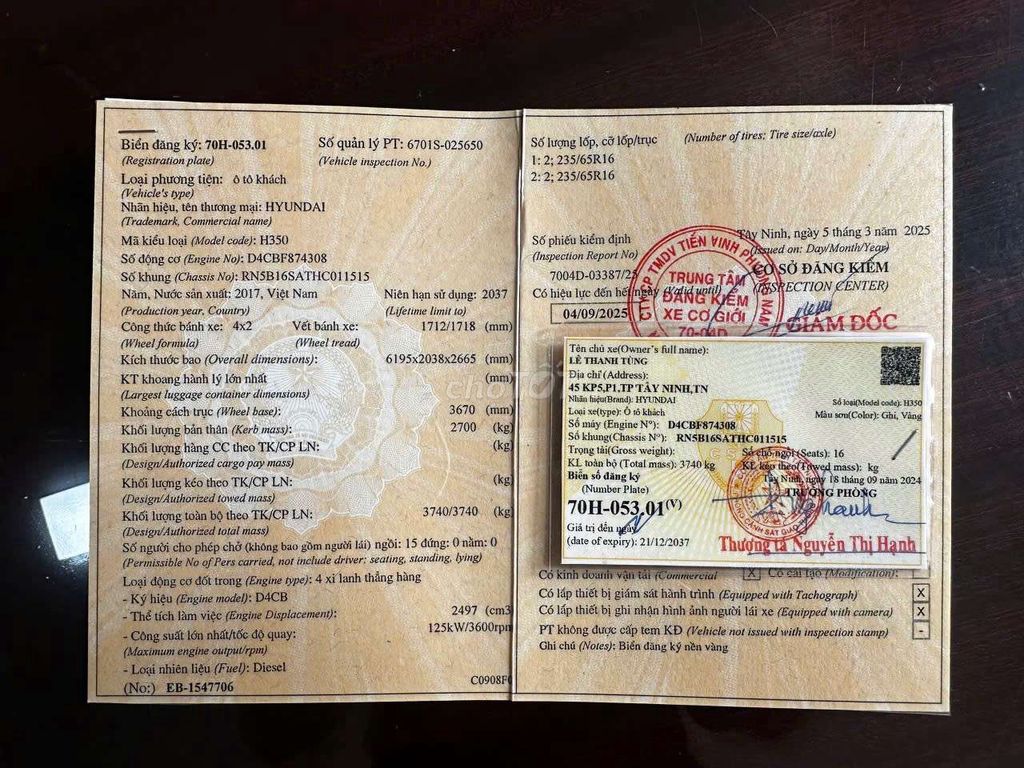 Biển đăng ký: 70H-053.01
Số quản lý PT: 6701S-025650
(Registration plate)
(Vehicle inspection No.)
Loại phương tiện: ô tô khách
(Vehicle's type)
Nhãn hiệu, tên thương mại: HYUNDAI
(Trademark, Commercial name)
Mã kiểu loại (Model code): H350
Số động cơ (Engine No): D4CBF874308
Số khung (Chassis No): RN5B16SATHC011515
Năm, Nước sản xuất: 2017, Việt Nam
Niên hạn sử dụng: 2037
(Production year, Country)
(Lifetime limit to)
Công thức bánh xe: 4x2
Vết bánh xe: 1712/1718 (mm)
(Wheel formula)
(Wheel tread)
Kích thước bao (Overall dimensions): 6195x2038x2665 (mm)
KT khoang hành lý lớn nhất (mm)
(Largest luggage container dimensions)
Khoảng cách trục (Wheel base): 3670 (mm)
Khối lượng bản thân (Kerb mass): 2700 (kg)
Khối lượng hàng CC theo TK/CP LN: (kg)
(Design/Authorized cargo pay mass)
Khối lượng kéo theo TK/CP LN: (kg)
(Design/Authorized towed mass)
Khối lượng toàn bộ theo TK/CP LN: 3740/3740 (kg)
(Design/Authorized total mass)
Số người cho phép chở (không bao gồm người lái) ngồi: 15 đứng: 0 nằm: 0
(Permissible No of Pers carried, not include driver: seating, standing, lying)
Loại động cơ đốt trong (Engine type): 4 xi lanh thẳng hàng
- Ký hiệu (Engine model): D4CB
- Thể tích làm việc (Engine Displacement): 2497 (cm3
- Công suất lớn nhất/tốc độ quay: 125kW/3600rpm
(Maximum engine output/rpm)
- Loại nhiên liệu (Fuel): Diesel
(No:) EB-1547706
C0908F
Số lượng lốp, cỡ lốp/trục
(Number of tires: Tire size/axle)
1: 2; 235/65R16
2: 2; 235/65R16
Tây Ninh, ngày 5 tháng 3 năm 2025
(Issued on: Day/Month/Year)
Số phiếu kiểm định
(Inspection Report No)
7004D-03387/25
CƠ SỞ ĐĂNG KIỂM
(INSPECTION CENTER)
Có hiệu lực đến hết ngày (Valid until)
04/09/2025
CTY CP TMDV TIẾN VINH PHONG NAM
TRUNG TÂM
ĐĂNG KIỂM
XE CƠ GIỚI
70-04D
GIÁM ĐỐC
Tên chủ xe(Owner's full name):
LÊ THANH TÙNG
Địa chỉ (Address):
45 KP5,P1,TP TÂY NINH,TN
Nhãn hiệu(Brand): HYUNDAI
Số loại(Model code): H350
Loại xe(type): Ô tô khách
Màu sơn(Color): Ghi, Vàng
Số máy (Engine N°): D4CBF874308
Số khung(Chassis N°): RN5B16SATHC011515
Trọng tải(Gross weight):
Số chỗ ngồi (Seats): 16
KL toàn bộ (Total mass): 3740 kg
KL kéo theo(Towed mass): kg
Biển số đăng ký
(Number Plate)
Tây Ninh, ngày 18 tháng 09 năm 2024
TRƯỞNG PHÒNG
70H-053.01(V)
Giá trị đến ngày
(date of expiry): 21/12/2037
Thượng tá Nguyễn Thị Hạnh
Có kinh doanh vận tải (Commercial X
Có cải tạo (Modification):
Có lắp thiết bị giám sát hành trình (Equipped with Tachograph) X
Có lắp thiết bị ghi nhận hình ảnh người lái xe (Equipped with camera) X
PT không được cấp tem KĐ (Vehicle not issued with inspection stamp) -
Ghi chú (Notes): Biển đăng ký nền vàng